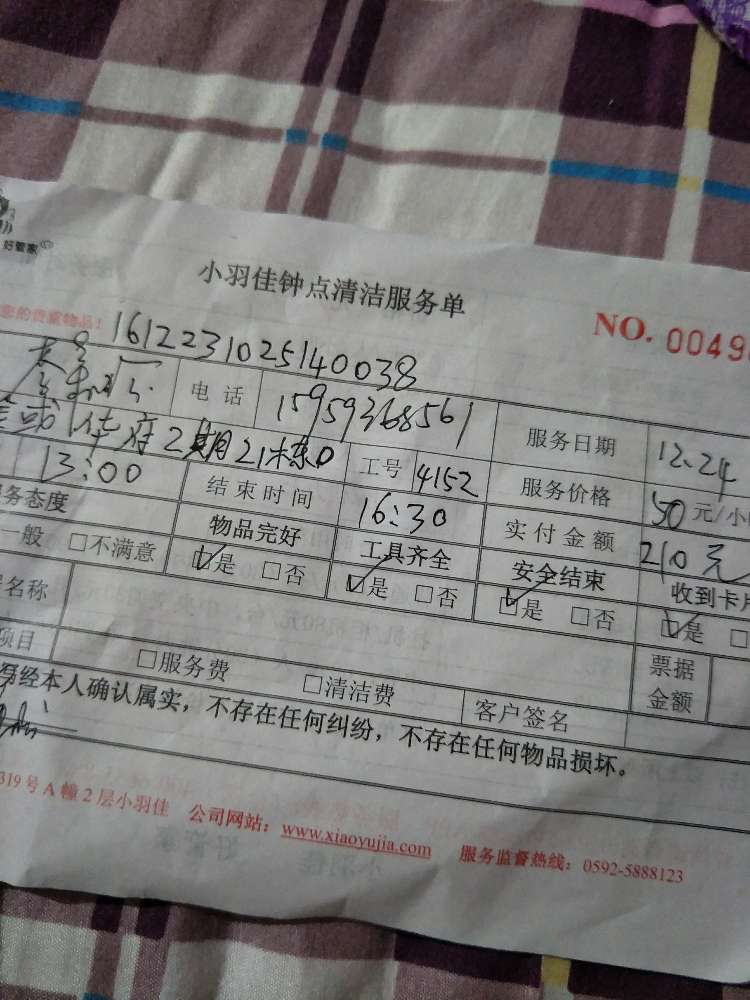 好管家
小羽佳钟点清洁服务单
您的贵重物品!
NO. 0049
1612231025140038
电话 15959368561 服务日期 12.24
华府2期21栋 工号 4152 服务价格 50元/小
13:00 结束时间 16:30 实付金额 210元
务态度 物品完好 工具齐全 安全结束 收到卡片
一般 □不满意 ☑是 □否 ☑是 □否 ☑是 □否 ☑是 □
名称
项目 □服务费 □清洁费 客户签名 票据金额
易经本人确认属实，不存在任何纠纷，不存在任何物品损坏。
319号A幢2层小羽佳 公司网站：www.xiaoyujia.com 服务监督热线：0592-5888123